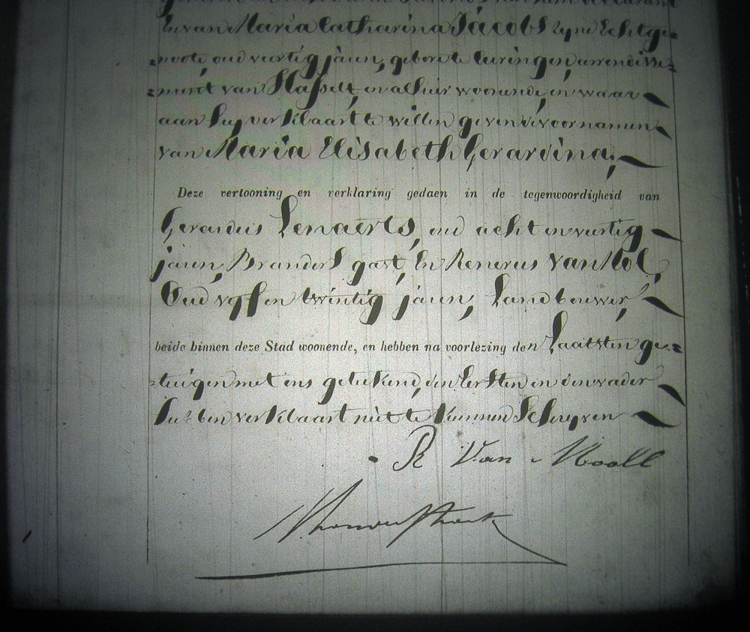 En van Maria Catharina Jacobs zyne Echtge=
noote, oud veertig jaren, geboren te Curingen, arrondisse=
=ment van Hasselt, en alhier woonende, en waar
aan hy verklaart te willen geven de voornamen
van Maria Elisabeth Gerardina,
Deze vertooning en verklaring gedaen in de tegenwoordigheid van
Gerardus Lenaerts, oud acht en veertig
jaren, Branders gast, En Renerus van Mol,
Oud vyf en twintig jaren, Landbouwer,
beide binnen deze Stad woonende, en hebben na voorlezing den Laatsten ge=
=tuigen met ons geteekend, den Eersten en den vader
hebben verklaart niet te kunnen Schryven
R Van Mooll